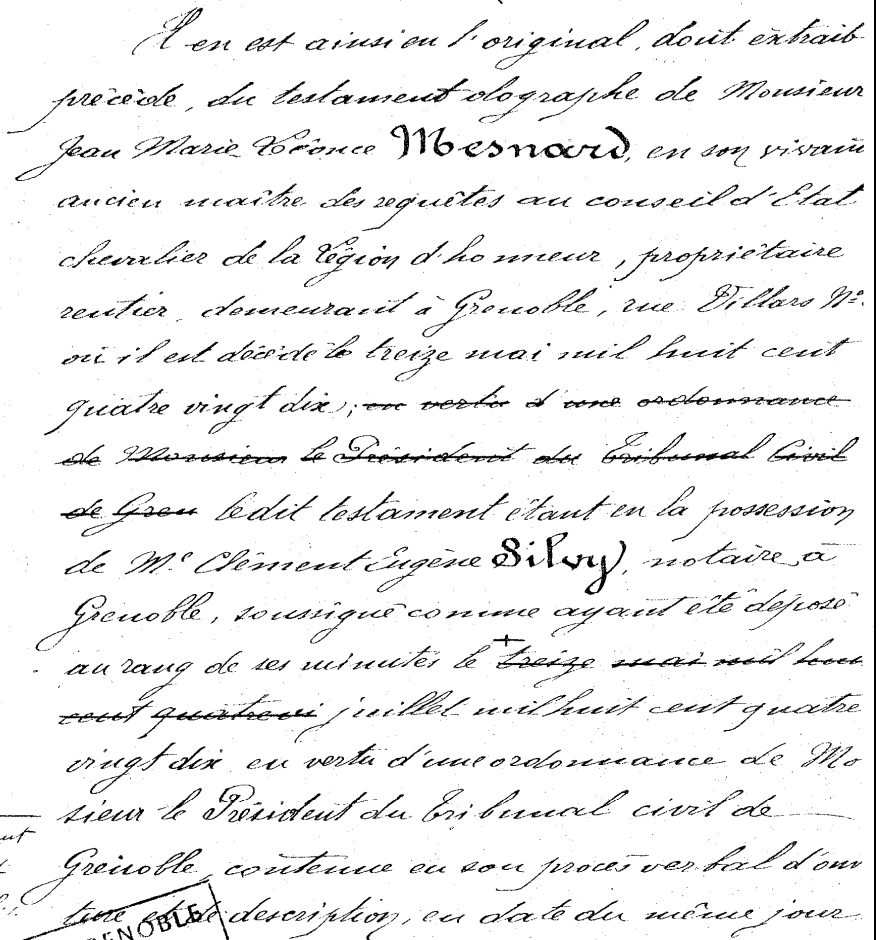 Il en est ainsi en l'original, dont extrait
précède, du testament olographe de Monsieur
Jean Marie Léonce Mesnard, en son vivant
ancien maître des requêtes au conseil d'Etat
chevalier de la Légion d'honneur, propriétaire
rentier, demeurant à Grenoble, rue Villars Nº.
où il est décédé le treize mai mil huit cent
quatre vingt dix; en vertu d'une ordonnance
de Monsieur le Président du Tribunal Civil
de Gren ledit testament étant en la possession
de Me Clément Eugène Silvy, notaire à
Grenoble, soussigné comme ayant été déposé
au rang de ses minutes le + treize mai mil hui
cent quatrevi juillet mil huit cent quatre
vingt dix en vertu d'une ordonnance de Mo
sieur le Président du Tribunal civil de
Grenoble, contenue en son procès verbal d'ouv
ture et de description, en date du même jour
ENOBLE